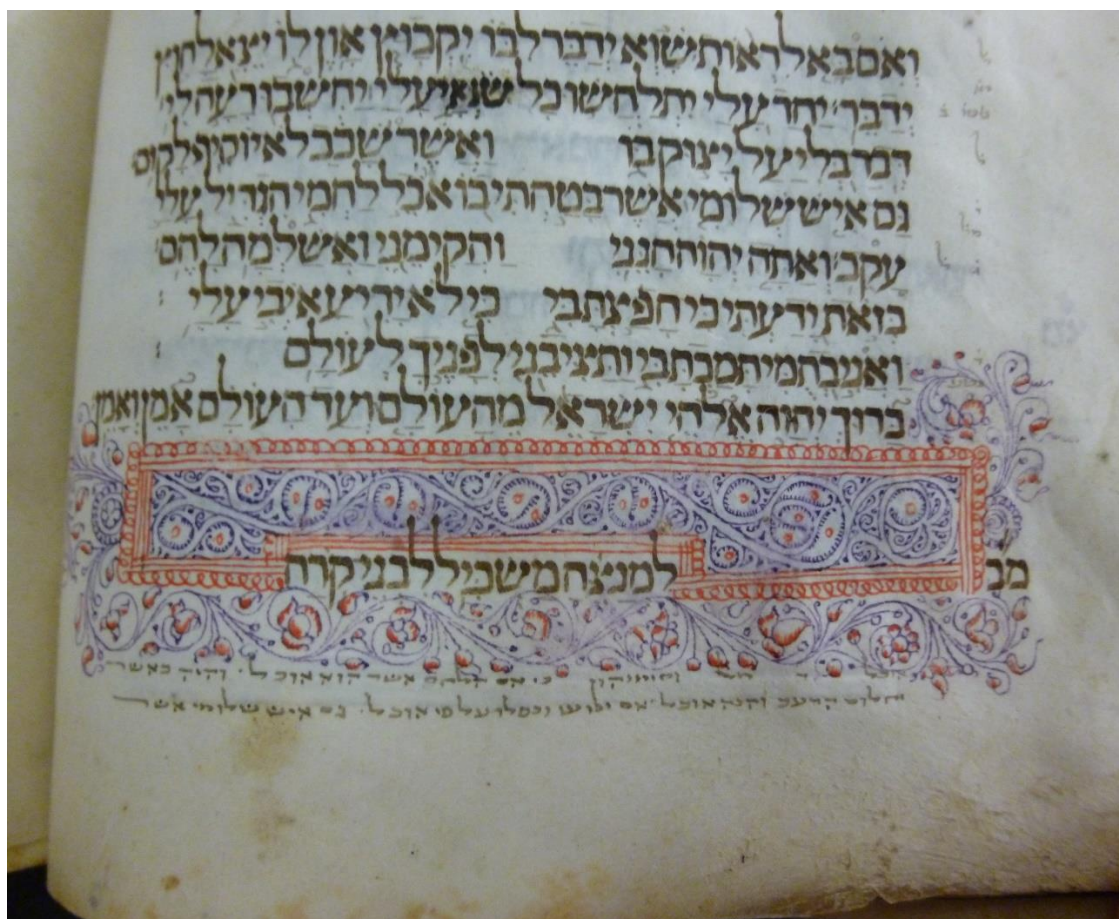 ואם בא לראות שוא ידבר לבו יקבץ און לו יצא לחוץ
ידבר יחד עלי יתלחשו כל שנאי עלי יחשבו רעה לי
דבר בליעל יצוק בו ואשר שכב לא יוסיף לקום
גם איש שלומי אשר בטחתי בו אכל לחמי הגדיל עלי
עקב ואתה יהוה חנני והקימני ואשלמה להם
בזאת ידעתי כי חפצת בי כי לא יריע איבי עלי :
ואני בתמי תמכת בי ותציבני לפניך לעולם :
ברוך יהוה אלהי ישראל מהעולם ועד העולם אמן ואמן
מב למנצח משכיל לבני קרח
כי אם הלחם אשר הוא אוכל והיה כאשר
יחלום הרעב והנה אוכל ונפלו על פי אוכל גם איש שלומי אשר